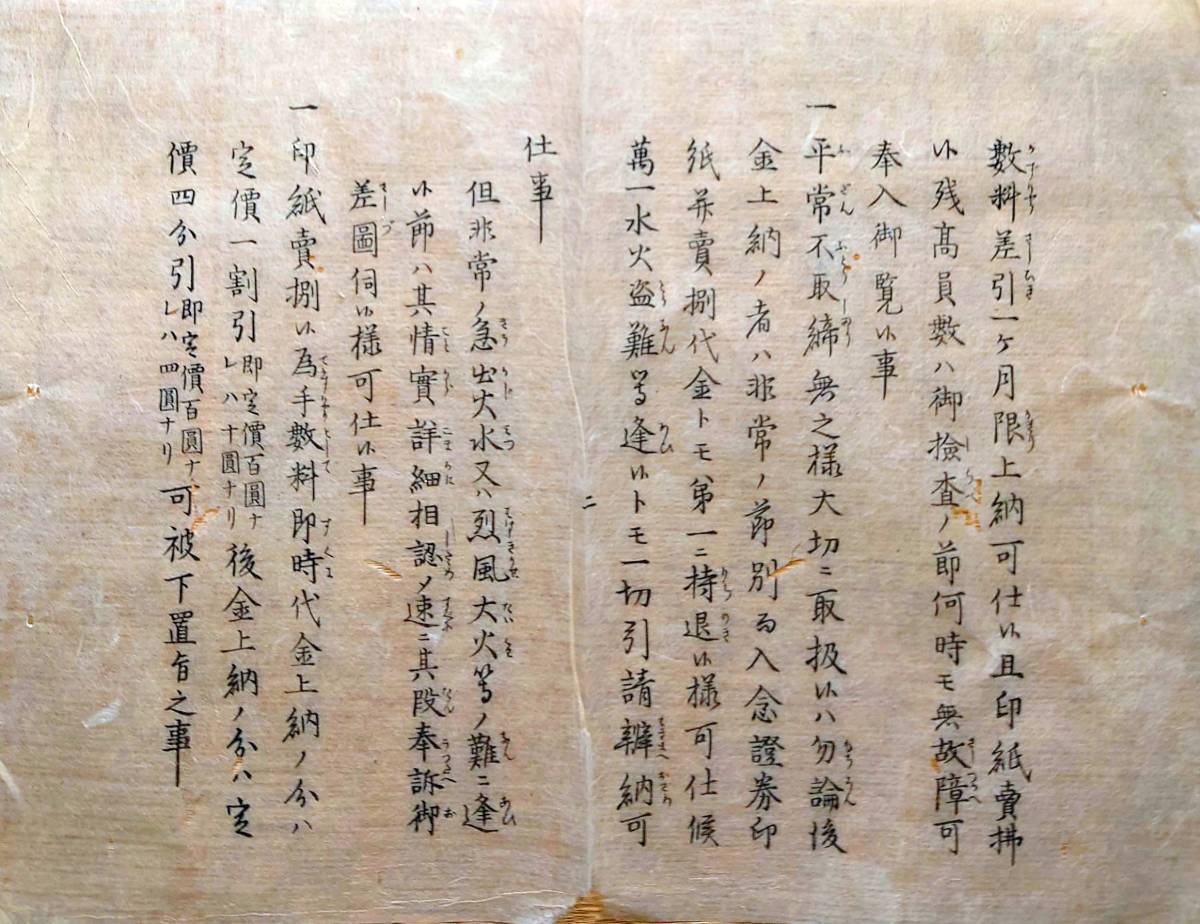 數料差引一ケ月限上納可仕候且印紙賣拂
候残髙員數ハ御撿査ノ節何時モ無故障可
奉入御覧候事
一平常不取締無之樣大切ニ取扱候ハ勿論後
金上納ノ者ハ非常ノ節別而入念證券印
紙并賣捌代金トモ第一ニ持退候樣可仕候
萬一水火盗難等逢候トモ一切引請辨納可
仕事
二
但非常ノ急出火水又ハ烈風大火等ノ難ニ逢
候節ハ其情實詳細相認メ速ニ其段奉訴御
差圖伺候樣可仕候事
一印紙賣捌候為手數料即時代金上納ノ分ハ
定價一割引即定價百圓ナレハ十圓ナリ後金上納ノ分ハ定
價四分引即定價百圓ナレハ四圓ナリ可被下置旨之事